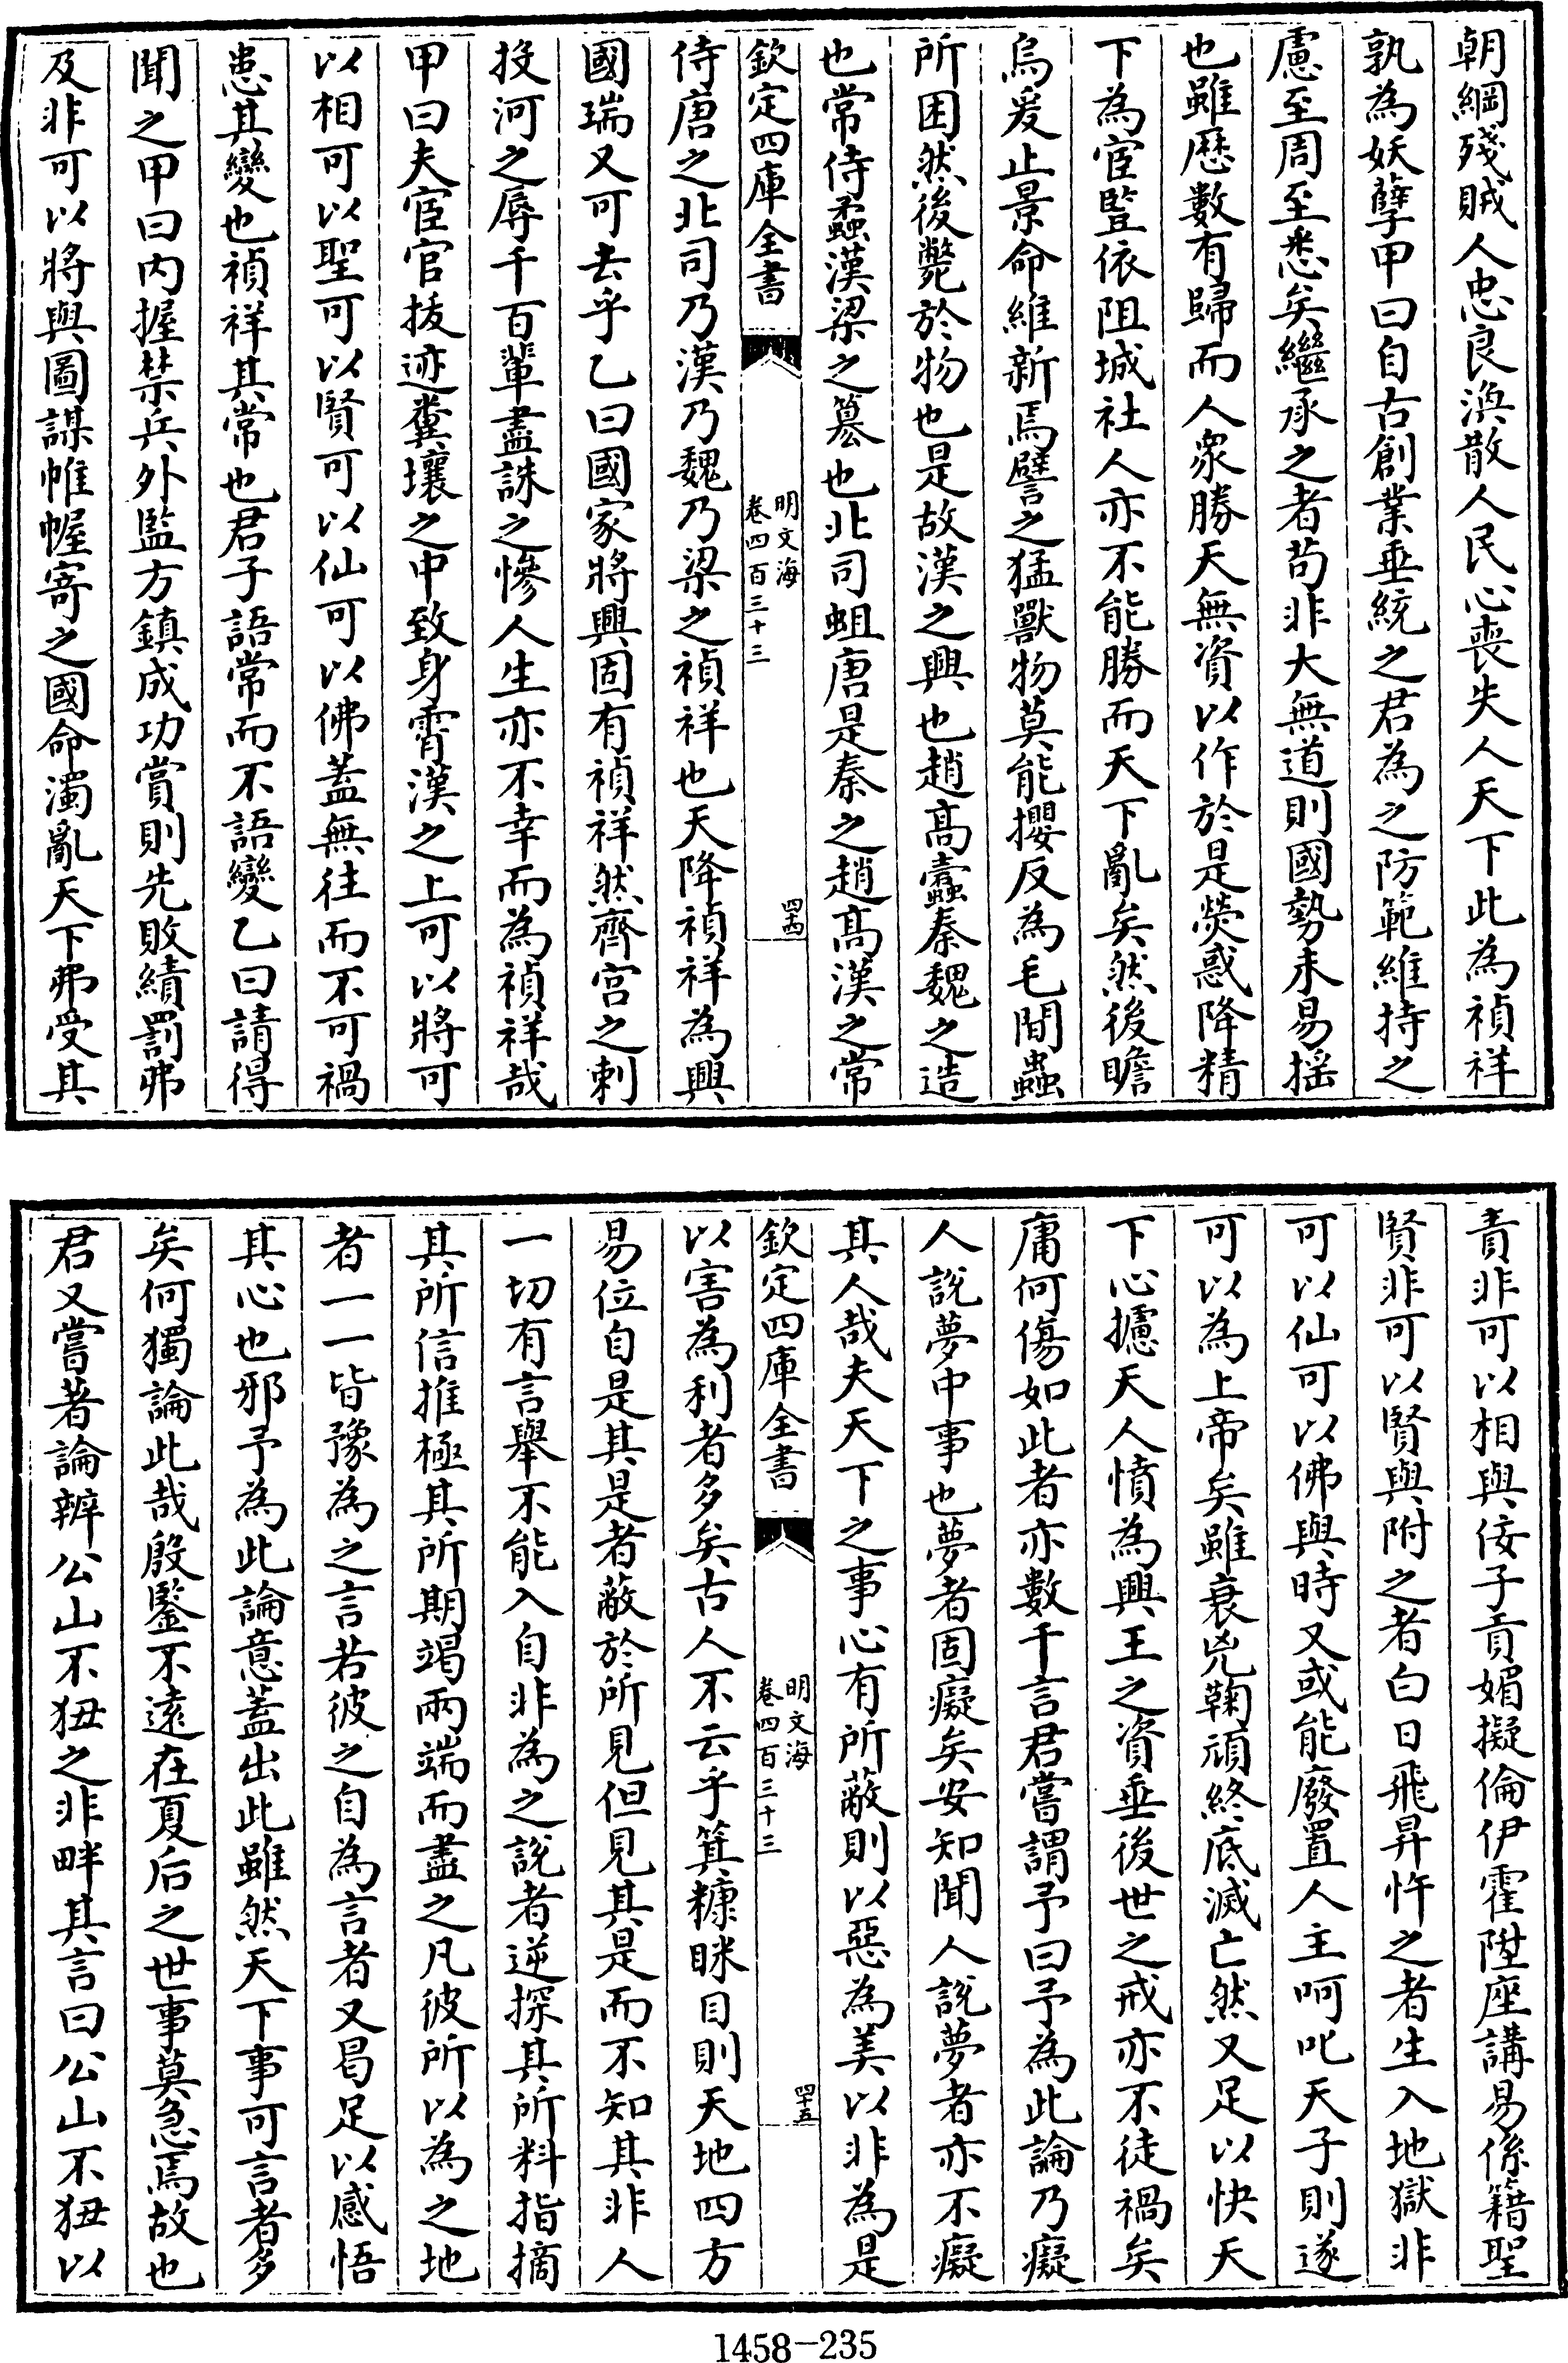 朝綱殘賊人忠良渙散人民心喪失人天下此為禎祥
孰為妖孽甲曰自古創業垂統之君為之防範維持之
慮至周至悉矣繼承之者苟非大無道則國勢未易揺
也雖歴數有歸而人衆勝天無資以作於是熒惑降精
下為宦豎依阻城社人亦不能勝而天下亂矣然後瞻
烏爰止景命維新焉譬之猛獸物莫能攖反為毛間蟲
所困然後斃於物也是故漢之興也趙髙蠹秦魏之造
也常侍蠱漢梁之簒也北司蛆唐是秦之趙髙漢之常
欽定四庫全書
明文海
卷四百三十三
四十四
侍唐之北司乃漢乃魏乃梁之禎祥也天降禎祥為興
國瑞又可去乎乙曰國家將興固有禎祥然齊宫之刺
投河之辱千百輩盡誅之慘人生亦不幸而為禎祥哉
甲曰夫宦官抜迹糞壤之中致身霄漢之上可以將可
以相可以聖可以賢可以仙可以佛蓋無往而不可禍
患其變也禎祥其常也君子語常而不語變乙曰請得
聞之甲曰内握禁兵外監方鎮成功賞則先敗績罰弗
及非可以將與圖謀帷幄寄之國命濁亂天下弗受其
責非可以相與佞子貢媚擬倫伊霍陞座講易係籍聖
賢非可以賢與附之者白日飛昇忤之者生入地獄非
可以仙可以佛與時又或能廢置人主呵叱天子則遂
可以為上帝矣雖衰兇鞠頑終底滅亡然又足以快天
下心攄天人憤為興王之資垂後世之戒亦不徒禍矣
庸何傷如此者亦數千言君嘗謂予曰予為此論乃癡
人說夢中事也夢者固癡矣安知聞人說夢者亦不癡
其人哉夫天下之事心有所蔽則以惡為美以非為是
欽定四庫全書
明文海
卷四百三十三
四十五
以害為利者多矣古人不云乎箕糠眯目則天地四方
易位自是其是者蔽於所見但見其是而不知其非人
一切有言舉不能入自非為之說者逆探其所料指摘
其所信推極其所期竭兩端而盡之凡彼所以為之地
者一一皆豫為之言若彼之自為言者又曷足以感悟
其心也邪予為此論意蓋出此雖然天下事可言者多
矣何獨論此哉殷鑒不遠在夏后之世事莫急焉故也
君又嘗著論辨公山不狃之非畔其言曰公山不狃以
1458-235